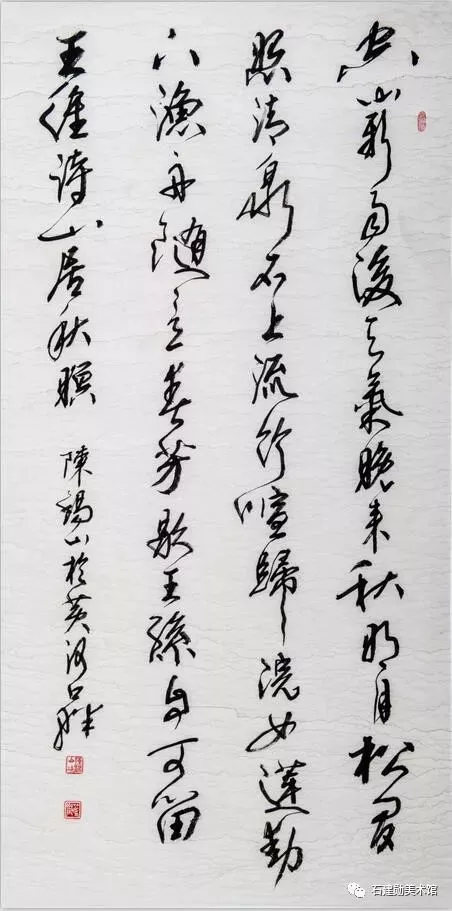 空山新雨後天氣晚來秋明月松間
照清泉石上流竹喧歸浣女蓮動
下漁舟隨意春芳歇王孫自可留
王維詩山居秋暝 陳錫山於黃河口
石建勋美术馆